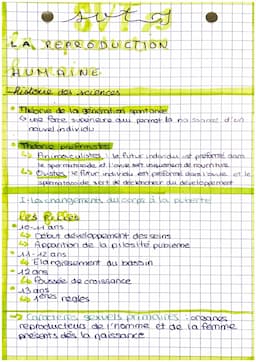 SVT
LA REPRODUCTION
HUMAINE
-Histoire des sciences
• Théorie de la génération spontanée
↳ une force supérieure qui permet la naissance d'un
nouvel individu
• Théorie préformiste
↳ Animaculistes : le futur individu est préformé dans
le spermatozoïde et l'ovule sert uniquement de nourriture
↳ Ovistes : le futur individu est préformé dans l'ovule et le
spermatozoïde sert de déclencheur du développement
I-Les changements du corps à la puberté
Les filles
• 10-11 ans
↳ Début développement des seins
↳ Apparition de la pilosité pubienne
• 11-12 ans
↳ Elargissement du bassin
• 12 ans
↳ Poussée de croissance
• 13 ans
↳ 1ères règles
→ Caractères sexuels primaires : organes
reproducteurs de l'homme et de la femme
présents dès la naissance